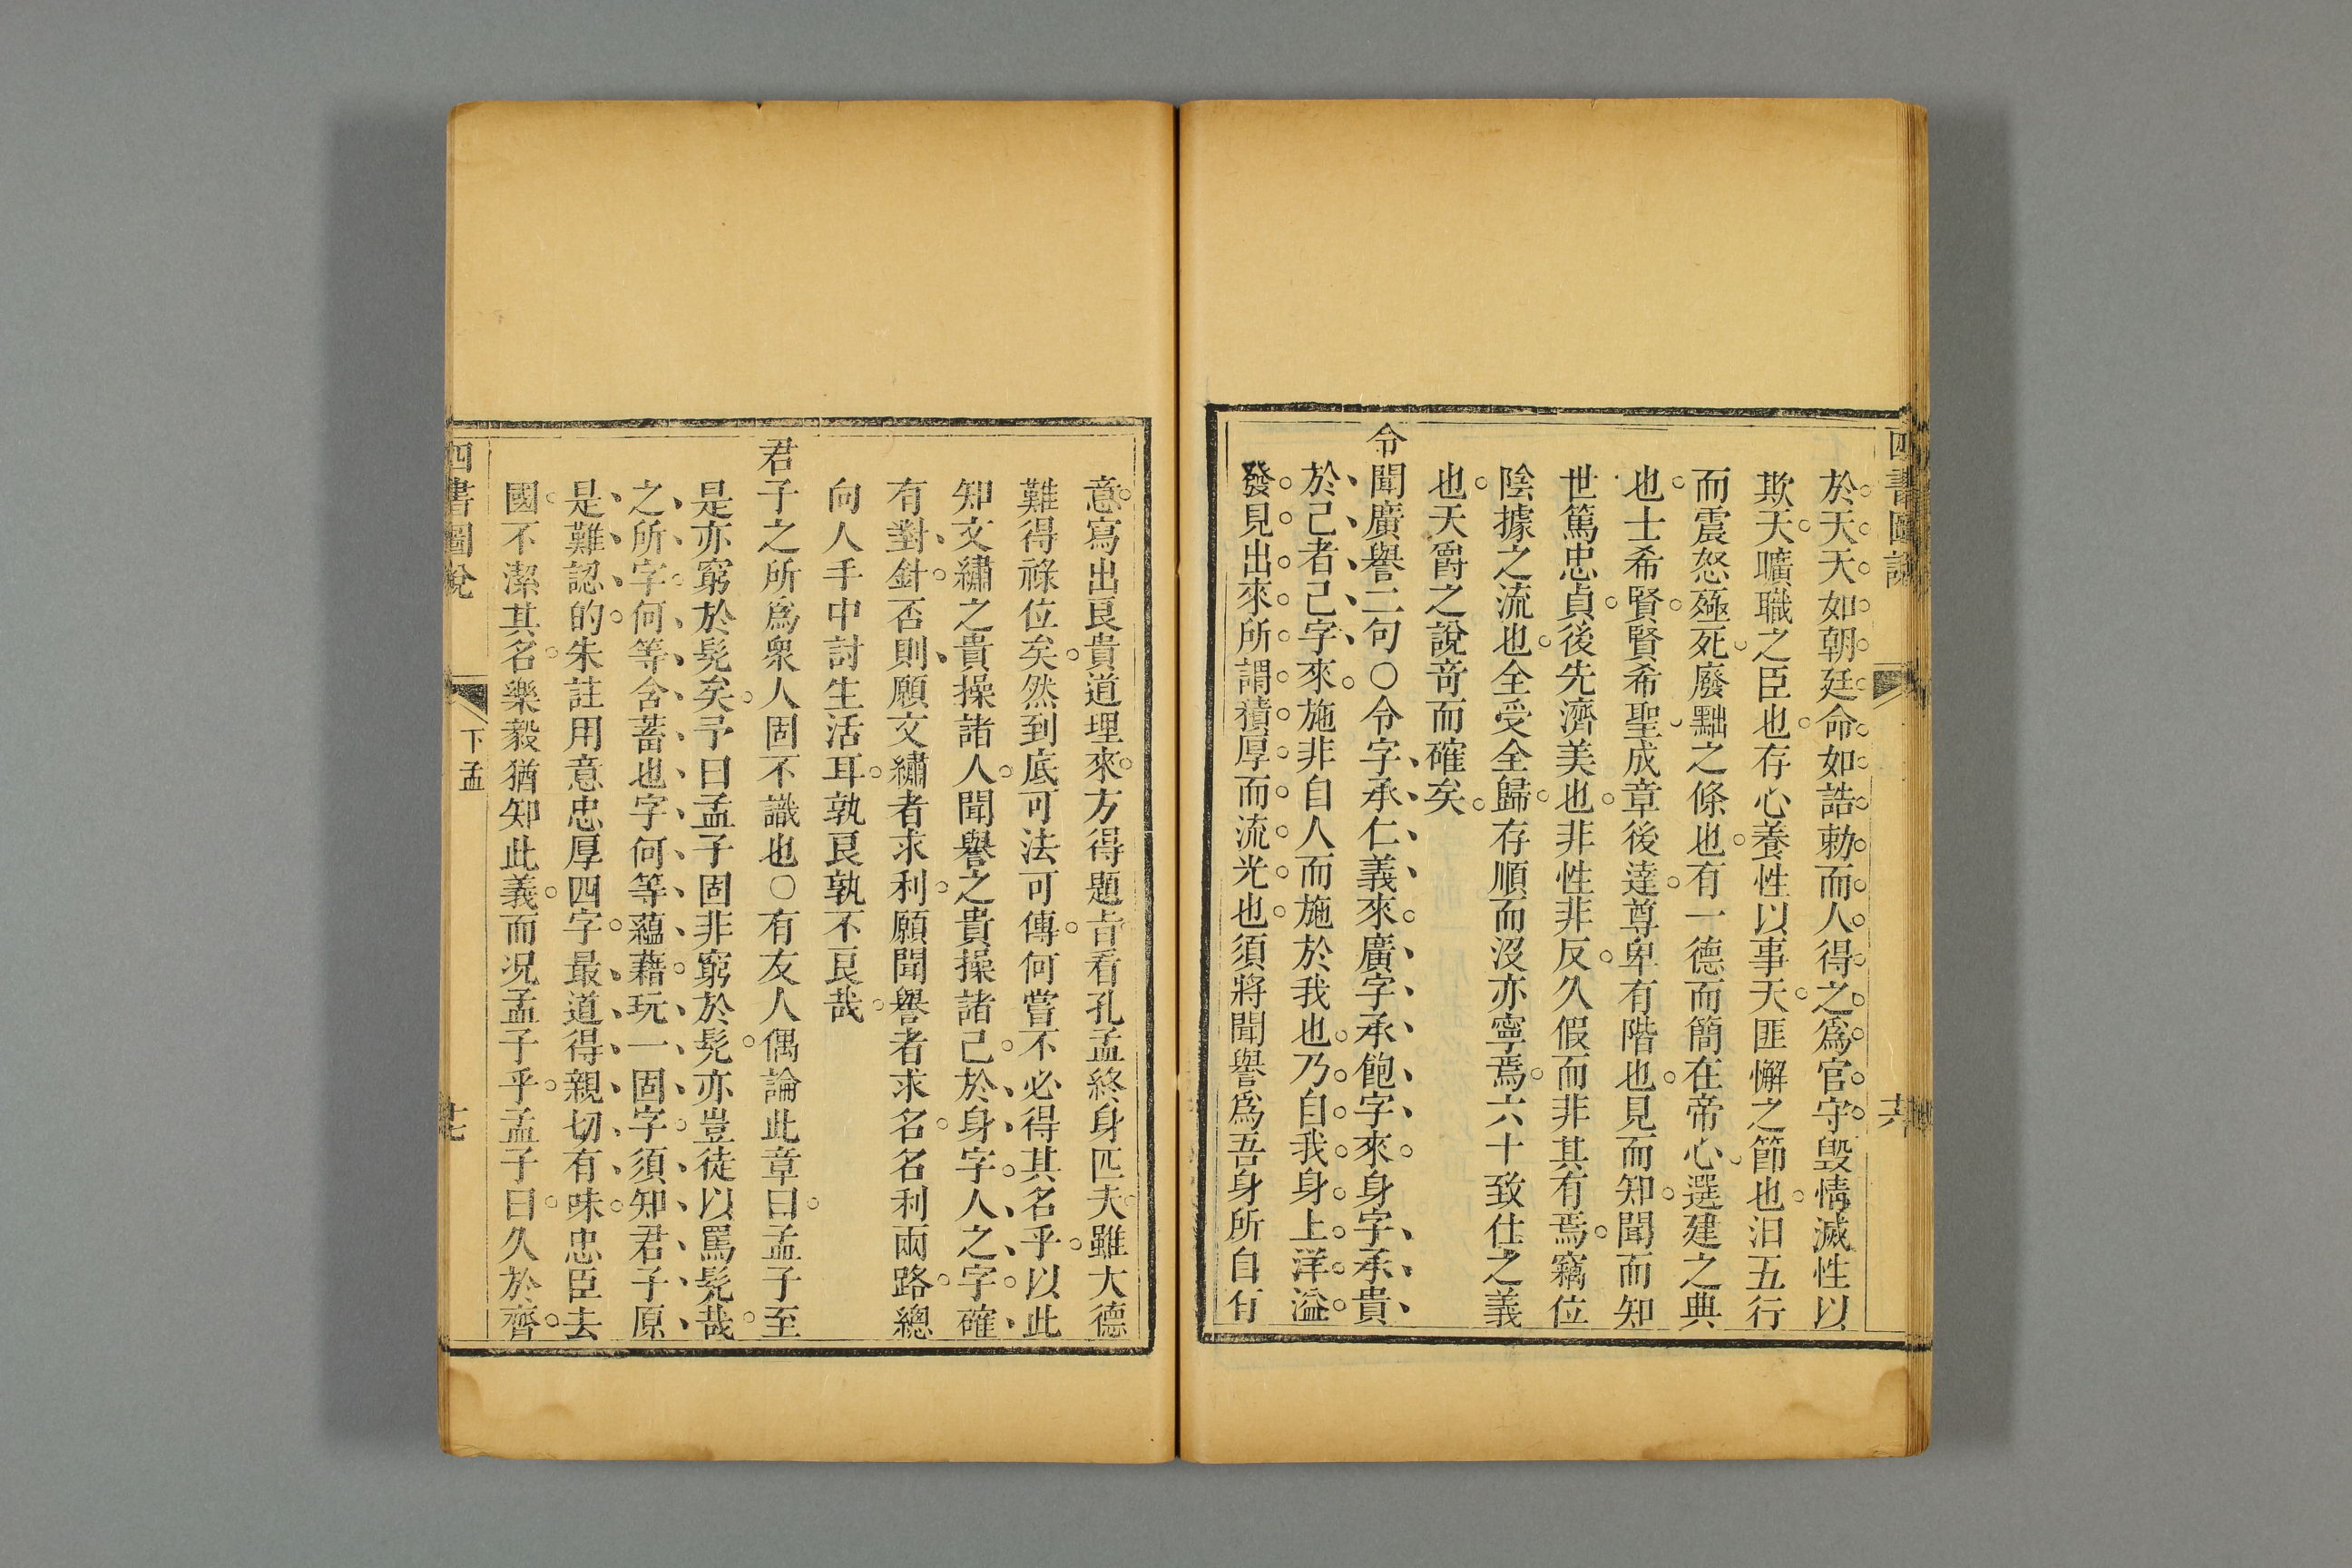 四書圖說
六
於天天如朝廷命如誥勅而人得之爲官守毀情滅性以
欺天曠職之臣也存心養性以事天匪懈之節也汨五行
而震怒殛死廢黜之條也有一德而簡在帝心選建之典
也士希賢賢希聖成章後達尊卑有階也見而知聞而知
世篤忠貞後先濟美也非性非反久假而非其有焉竊位
陰據之流也全受全歸存順而沒亦寧焉六十致仕之義
也天爵之說竒而確矣
令聞廣譽二句○令字承仁義來廣字承飽字來身字承貴
於己者己字來施非自人而施於我也乃自我身上洋溢
發見出來所謂積厚而流光也須將聞譽爲吾身所自有
意寫出良貴道理來方得題旨看孔孟終身匹夫雖大德
難得祿位矣然到底可法可傳何嘗不必得其名乎以此
知文繡之貴操諸人聞譽之貴操諸己於身字人之字確
有對針否則願文繡者求利願聞譽者求名名利兩路總
向人手中討生活耳孰良孰不良哉
君子之所爲衆人固不識也○有友人偶論此章曰孟子至
是亦窮於髡矣予曰孟子固非窮於髡亦豈徒以罵髡哉
之所字何等含蓄也字何等蘊藉玩一固字須知君子原
是難認的朱註用意忠厚四字最道得親切有味忠臣去
國不潔其名樂毅猶知此義而况孟子乎孟子曰久於齊
四書圖說
下孟